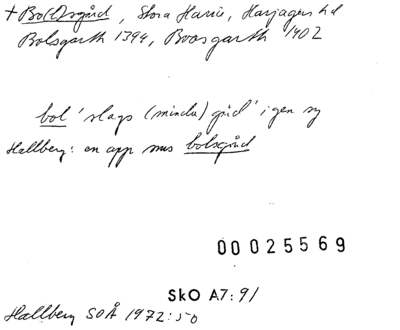 + Bo(l)sgård, Stora Harrie, Harjagers hd
Bolsgarth 1394, Boosgarth 1402
bol 'slags (mindre) gård' i gen sg
Hallberg: en app sms bolsgård
00025569
SkO A7:91
Hallberg SOÅ 1972:50